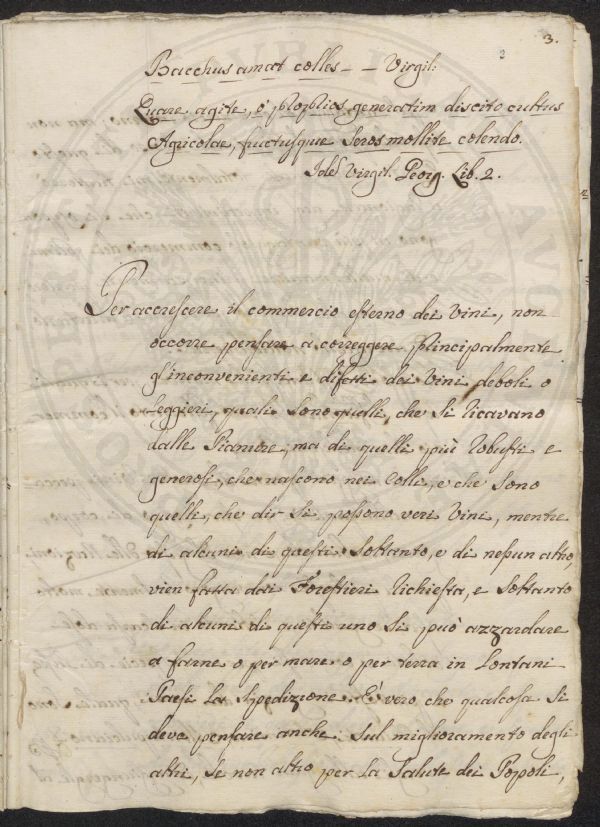 3.
Bacchus amat colles - - Virgil:
Quare agite, o' proprios generatim discite cultus
Agricolae, fructusque feros mollite colendo.
Idē Virgil. Georg. Lib. 2.
Per accrescere il commercio esterno dei Vini, non
occorre pensare a correggere principalmente
gl'inconvenienti e difetti dei Vini deboli o
leggieri, quali sono quelli, che si ricavano
dalle Pianure, ma di quelli più robusti e
generosi, che nascono nei Colli, e che sono
quelli, che dir si possono veri Vini, mentre
di alcuni di questi soltanto, e di nessun altro,
vien fatta dai Forestieri richiesta, e soltanto
di alcuni di questi uno si può azzardare
a farne o per mare o per terra in lontani
Paesi la spedizione. E' vero che qualcosa si
deve pensare anche sul miglioramento degli
altri, se non altro per la salute dei Popoli,